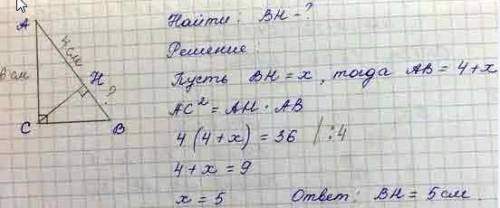 Найти: BH - ?
Решение:
Пусть BH = x, тогда AB = 4 + x
AC² = AH · AB
4(4 + x) = 36 | :4
4 + x = 9
x = 5 Ответ: BH = 5 см
A
4 см
H
6 см
?
C
B